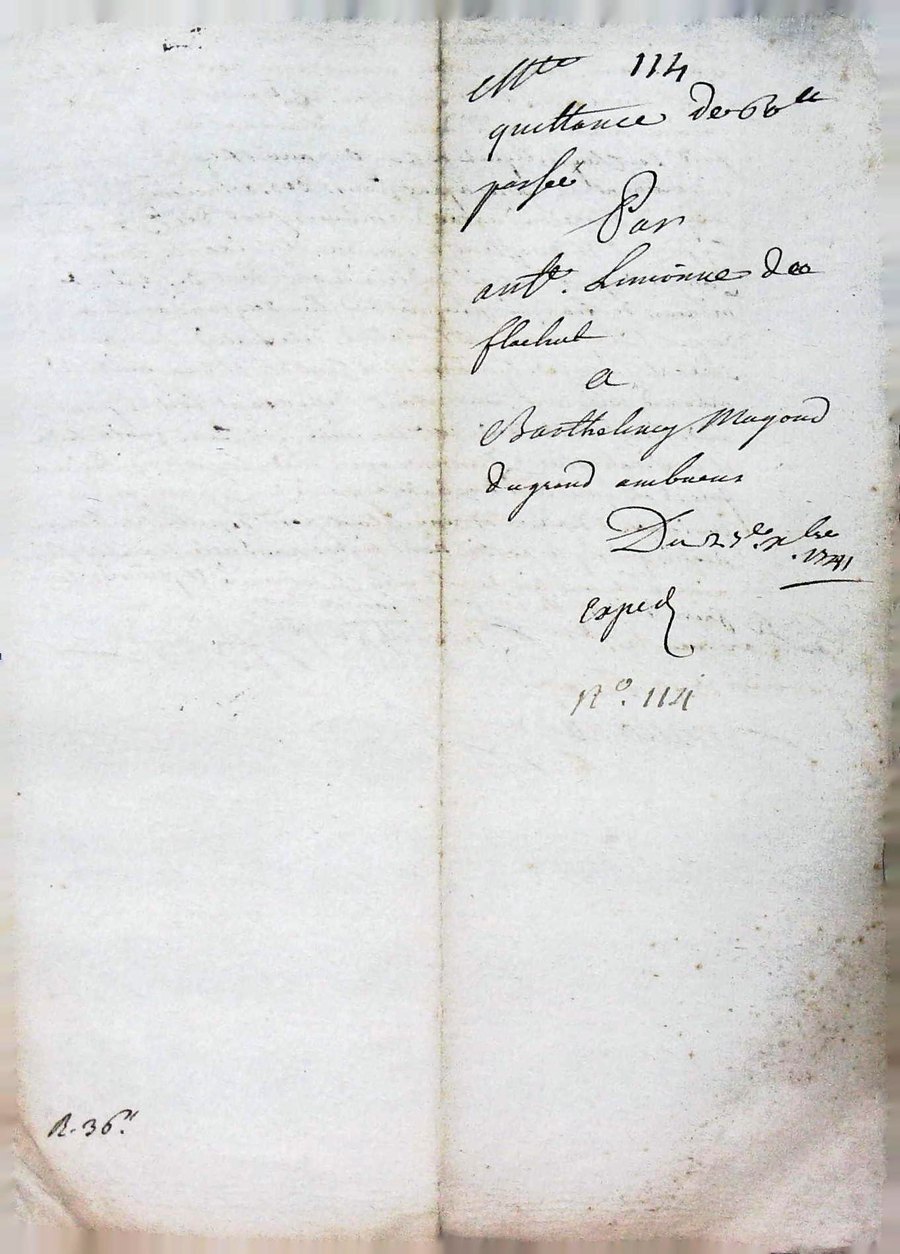 114
quittance de 60ll
passée
Par
antne. Limonne de
flachat
a
Barthelemy Mayoud
du grand ambuent
Du 27e xbre
1741
Exped
N°. 114
R. 36.